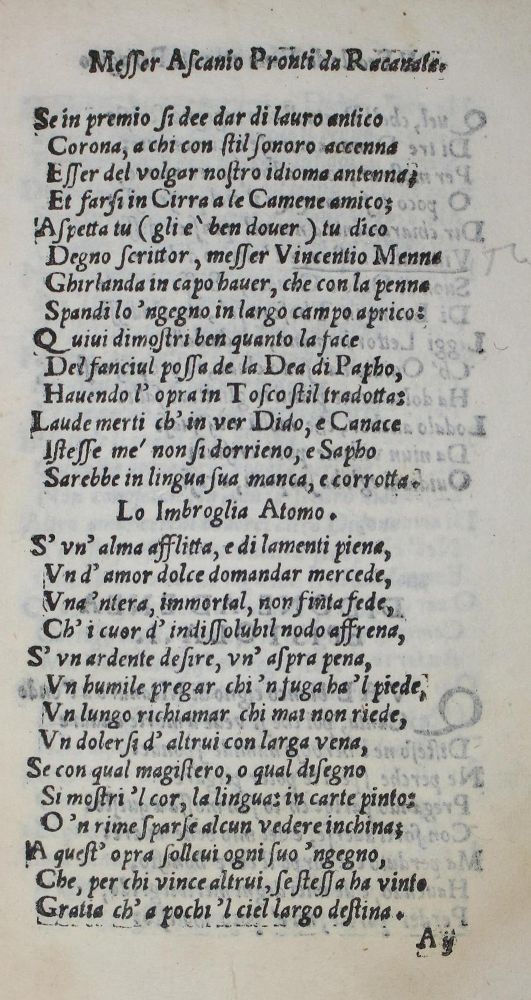 Meſſer Aſcanio Pronti da Racanata.
Se in premio ſi dee dar di lauro antico
Corona, a chi con ſtil ſonoro accenna
Eſſer del volgar noſtro idioma antenna;
Et farſi in Cirra a le Camene amico;
Aſpetta tu ( gli e` ben douer ) tu dico
Degno ſcrittor, meſſer Vincentio Menna
Ghirlanda in capo hauer, che con la penna
Spandi lo 'ngegno in largo campo aprico:
Quiui dimoſtri ben quanto la face
Del fanciul poſſa de la Dea di Papho,
Hauendo l' opra in Toſco ſtil tradotta:
Laude merti ch' in ver Dido, e Canace
Iſteſſe me' non ſi dorrieno, e Sapho
Sarebbe in lingua ſua manca, e corrotta.
Lo Imbroglia Atomo.
S' vn' alma afflitta, e di lamenti piena,
Vn d' amor dolce domandar mercede,
Vna 'ntera, immortal, non finta fede,
Ch' i cuor d' indiſſolubil nodo affrena,
S' vn ardente deſire, vn' aſpra pena,
Vn humile pregar chi 'n fuga ha 'l piede,
Vn lungo richiamar chi mai non riede,
Vn dolerſi d' altrui con larga vena,
Se con qual magiſtero, o qual diſegno
Si moſtri 'l cor, la lingua: in carte pinto:
O 'n rime ſparſe alcun vedere inchina;
A queſt' opra ſolleui ogni ſuo 'ngegno,
Che, per chi vince altrui, ſe ſteſſa ha vinto
Gratia ch' a pochi 'l ciel largo deſtina.
A ij